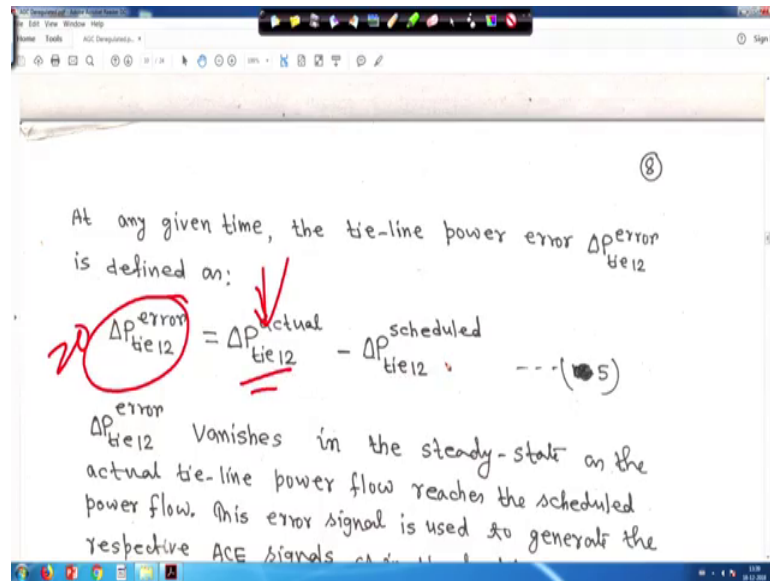 AGC Deregulated.pdf - Adobe Acrobat Reader DC
File Edit View Window Help
Home Tools AGC Deregulated.p... × Sign
⑧
At any given time, the tie-line power error ΔP_tie12^error
is defined as:
20 ΔP_tie12^error = ΔP_tie12^actual - ΔP_tie12^scheduled ---(5)
ΔP_tie12^error Vanishes in the steady-state as the
actual tie-line power flow reaches the scheduled
power flow. This error signal is used to generate the
respective ACE signals as in the